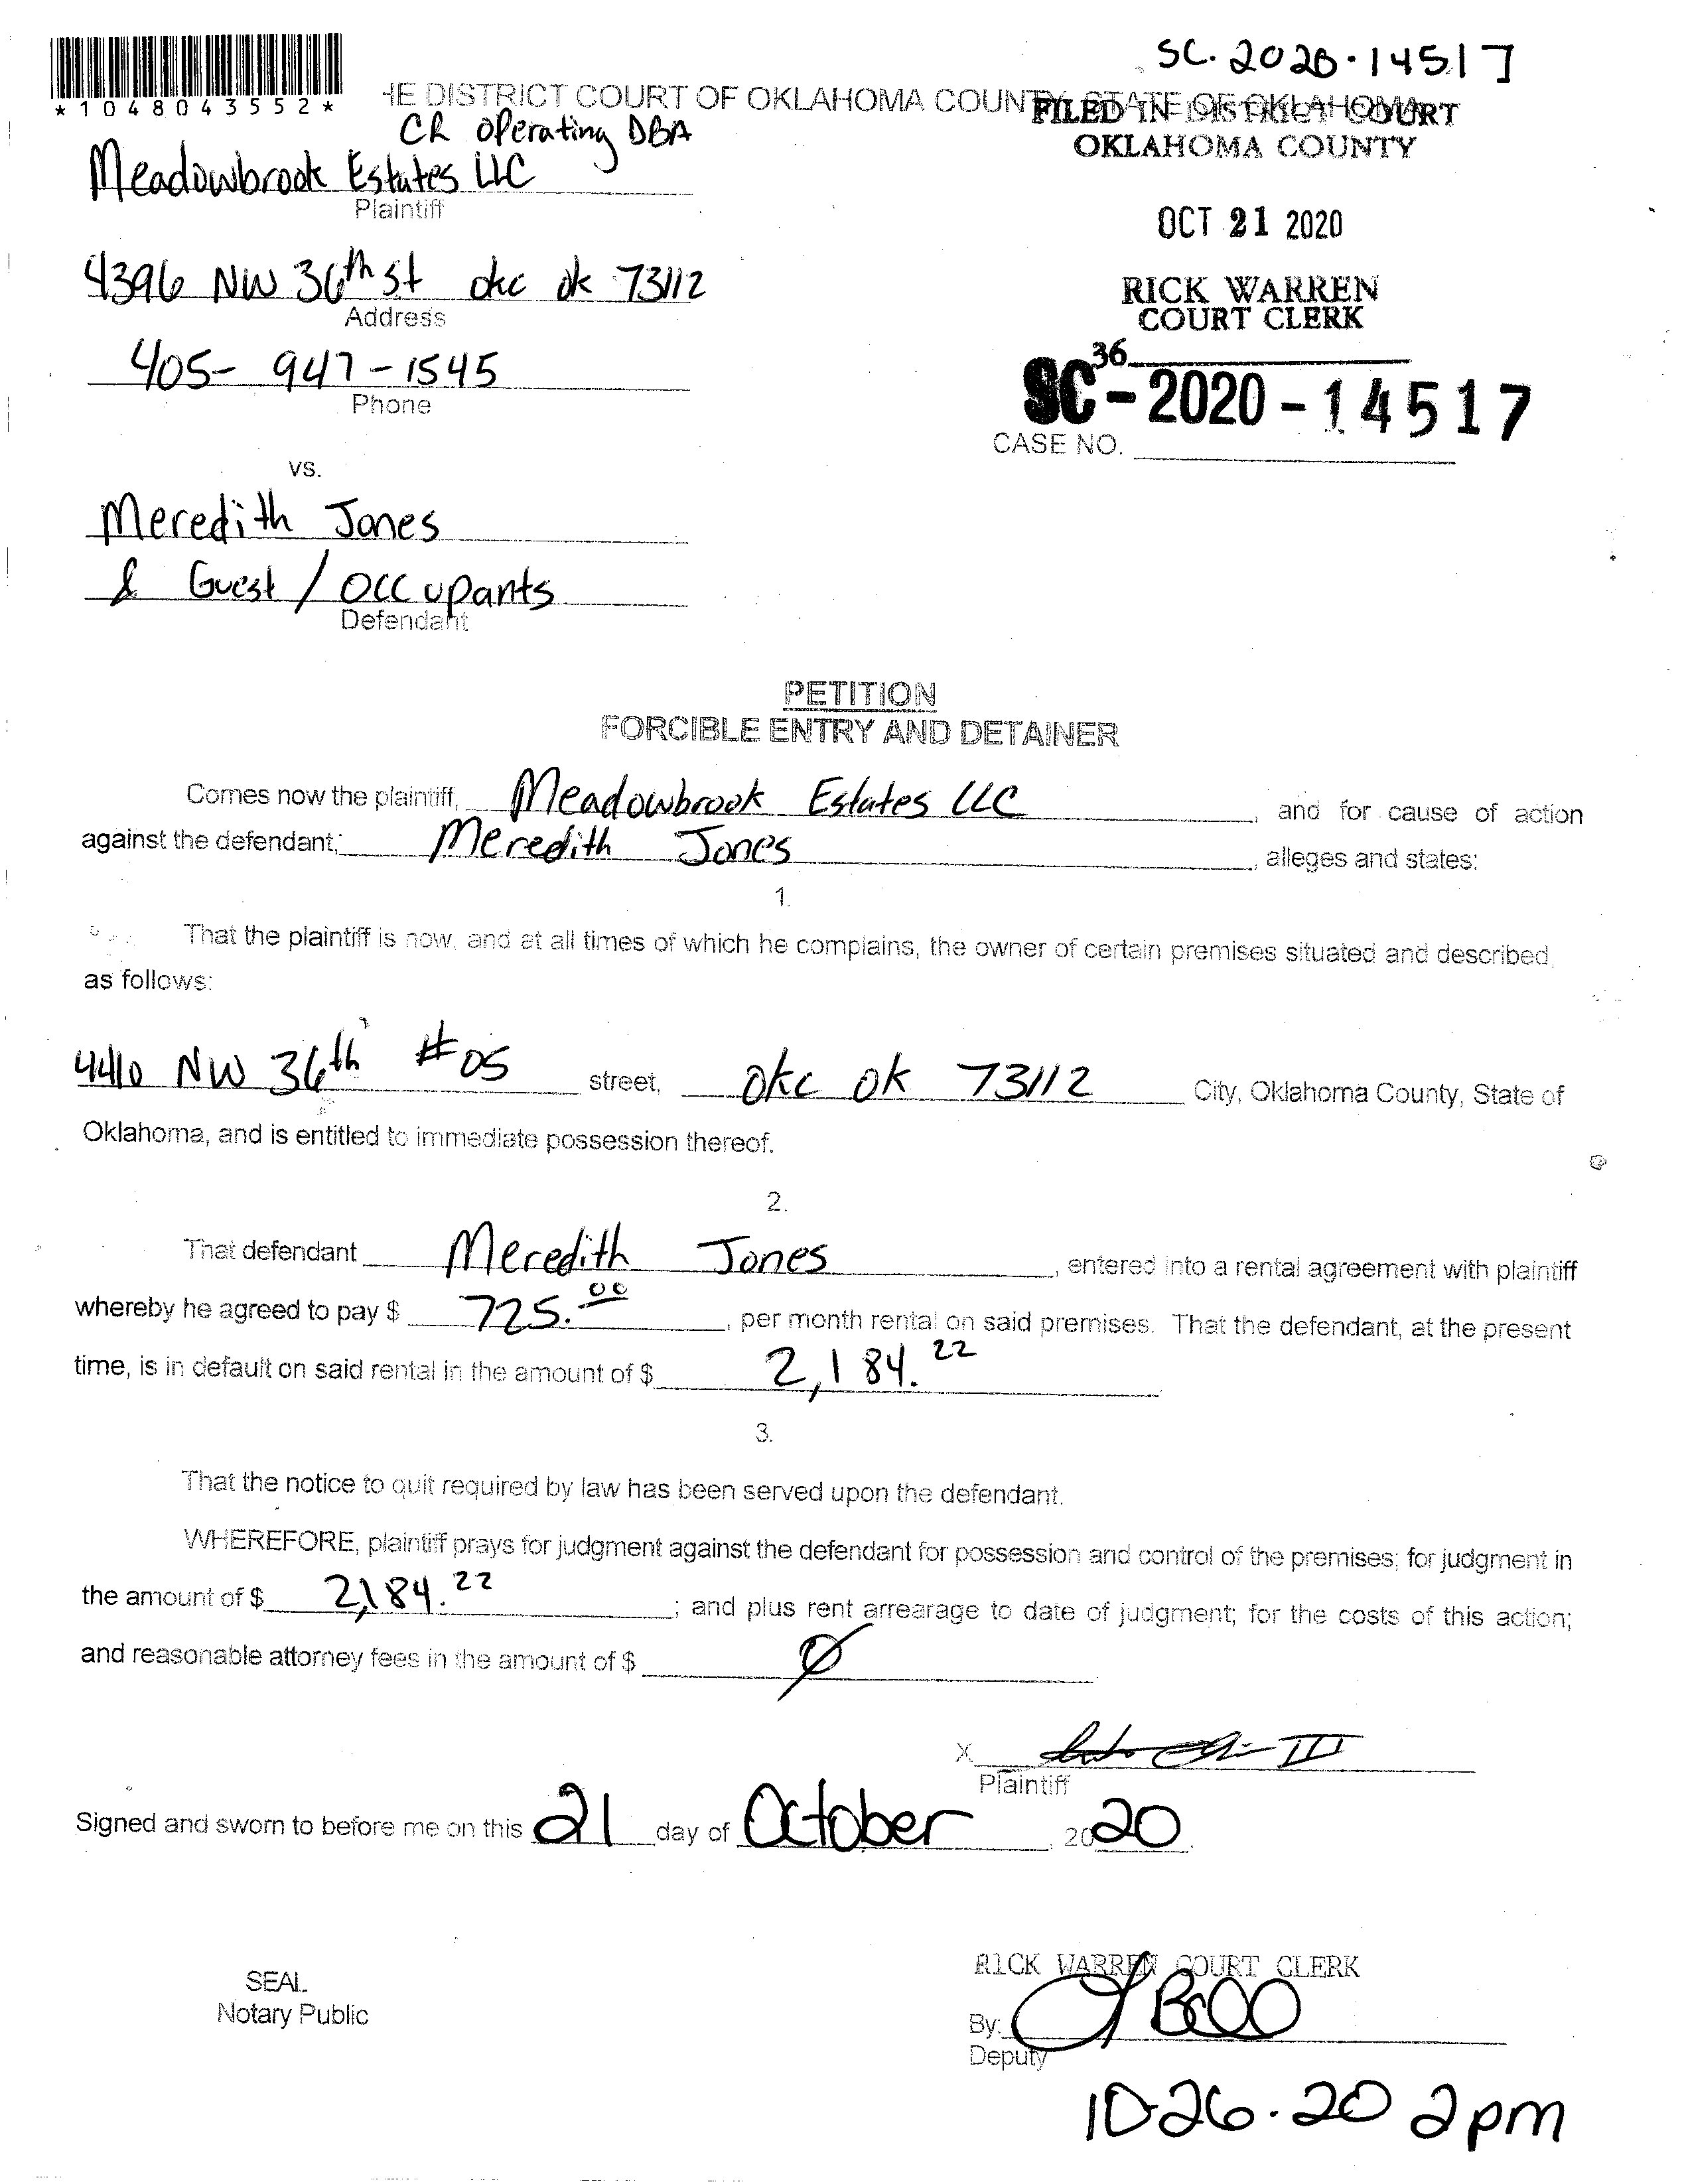 SC. 2020. 14517
*1048043552*
HE DISTRICT COURT OF OKLAHOMA COUNTY, STATE OF OKLAHOMA
FILED IN DISTRICT COURT
OKLAHOMA COUNTY
CR Operating DBA
Meadowbrook Estates LLC
Plaintiff
OCT 21 2020
4396 NW 36th St okc ok 73112
Address
RICK WARREN
COURT CLERK
405-947-1545
Phone
36
SC-2020-14517
CASE NO.
vs.
Meredith Jones
& Guest / Occupants
Defendant
PETITION
FORCIBLE ENTRY AND DETAINER
Comes now the plaintiff, Meadowbrook Estates LLC, and for cause of action
against the defendant; Meredith Jones, alleges and states:
1.
That the plaintiff is now, and at all times of which he complains, the owner of certain premises situated and described
as follows:
4410 NW 36th #05 street, okc ok 73112 City, Oklahoma County, State of
Oklahoma, and is entitled to immediate possession thereof.
2.
That defendant Meredith Jones, entered into a rental agreement with plaintiff
whereby he agreed to pay $ 725.00, per month rental on said premises. That the defendant, at the present
time, is in default on said rental in the amount of $ 2,184.22
3.
That the notice to quit required by law has been served upon the defendant.
WHEREFORE, plaintiff prays for judgment against the defendant for possession and control of the premises; for judgment in
the amount of $ 2,184.22; and plus rent arrearage to date of judgment; for the costs of this action;
and reasonable attorney fees in the amount of $ Ø
X III
Plaintiff
Signed and sworn to before me on this 21 day of October, 2020.
RICK WARREN COURT CLERK
SEAL
Notary Public
By: Bell
Deputy
10-26.20 2pm